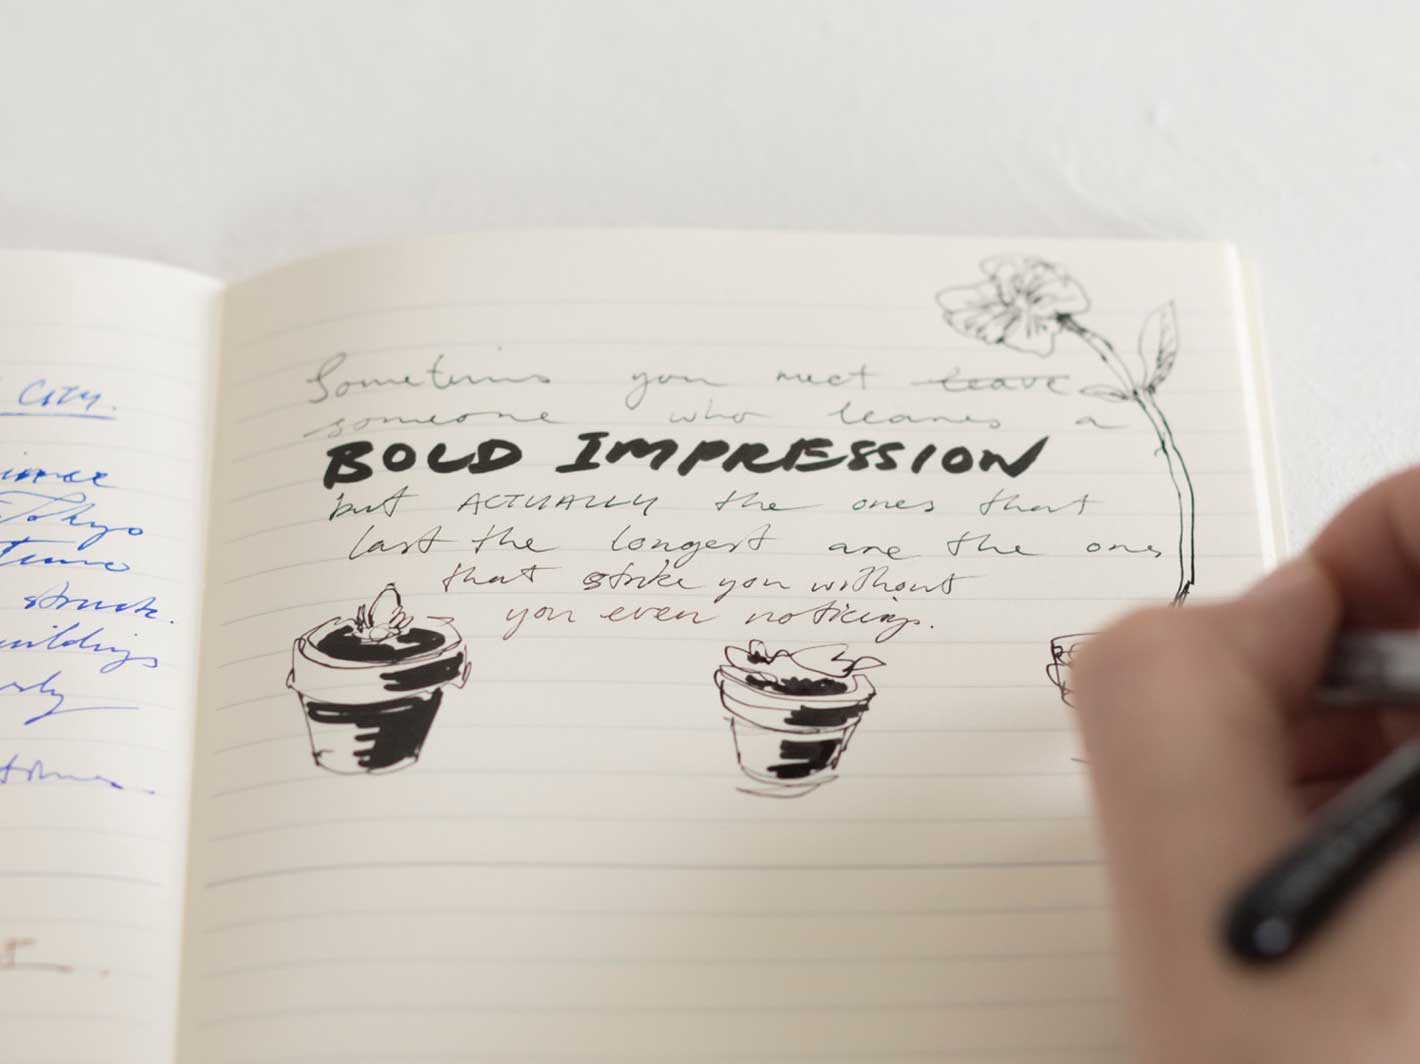 CITY.
Tokyo
time
struck.
buildings
Sometimes you meet leave
someone who leaves a
BOLD IMPRESSION
but ACTUALLY the ones that
last the longest are the ones
that strike you without
you even noticing.